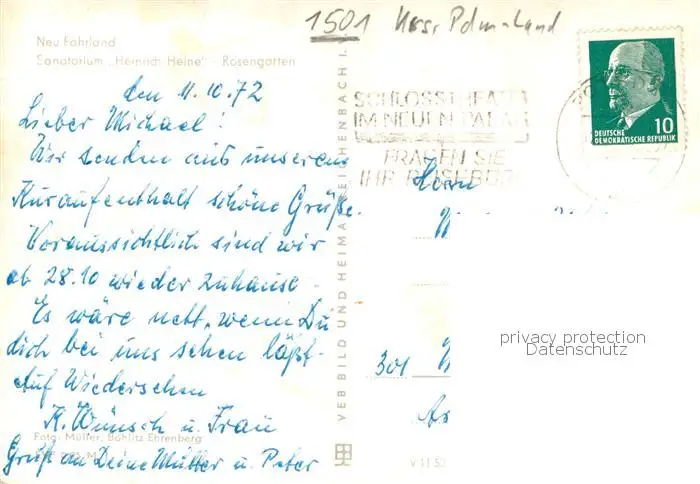 1501 Krs. Pdm-Land
Neu Fahrland
Sanatorium „Heinrich Heine" - Rosengarten
den 11.10.72
Lieber Michael!
Wir senden aus unserem
Kuraufenthalt schöne Grüße.
Voraussichtlich sind wir
ab 28.10 wieder zuhause.
Es wäre nett, wenn Du
dich bei uns sehen läßt.
Auf Wiedersehen
K. Wünsch u. Frau
Foto: Müller, Böhlitz-Ehrenberg
Gruß an Deine Mutter u. Peter
VEB BILD UND HEIMAT REICHENBACH I.
SCHLOSSTHEATER
IM NEUEN PALAIS
FRAGEN SIE
IHR REISEBÜRO
10
DEUTSCHE
DEMOKRATISCHE REPUBLIK
Herrn
301
privacy protection
Datenschutz
V 11 52